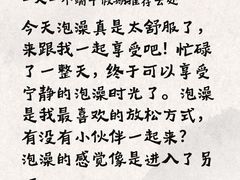 今天泡澡真是太舒服了，
来跟我一起享受吧！忙碌
了一整天，终于可以享受
宁静的泡澡时光了。泡澡
是我最喜欢的放松方式，
有没有小伙伴一起来？
泡澡的感觉像是进入了另